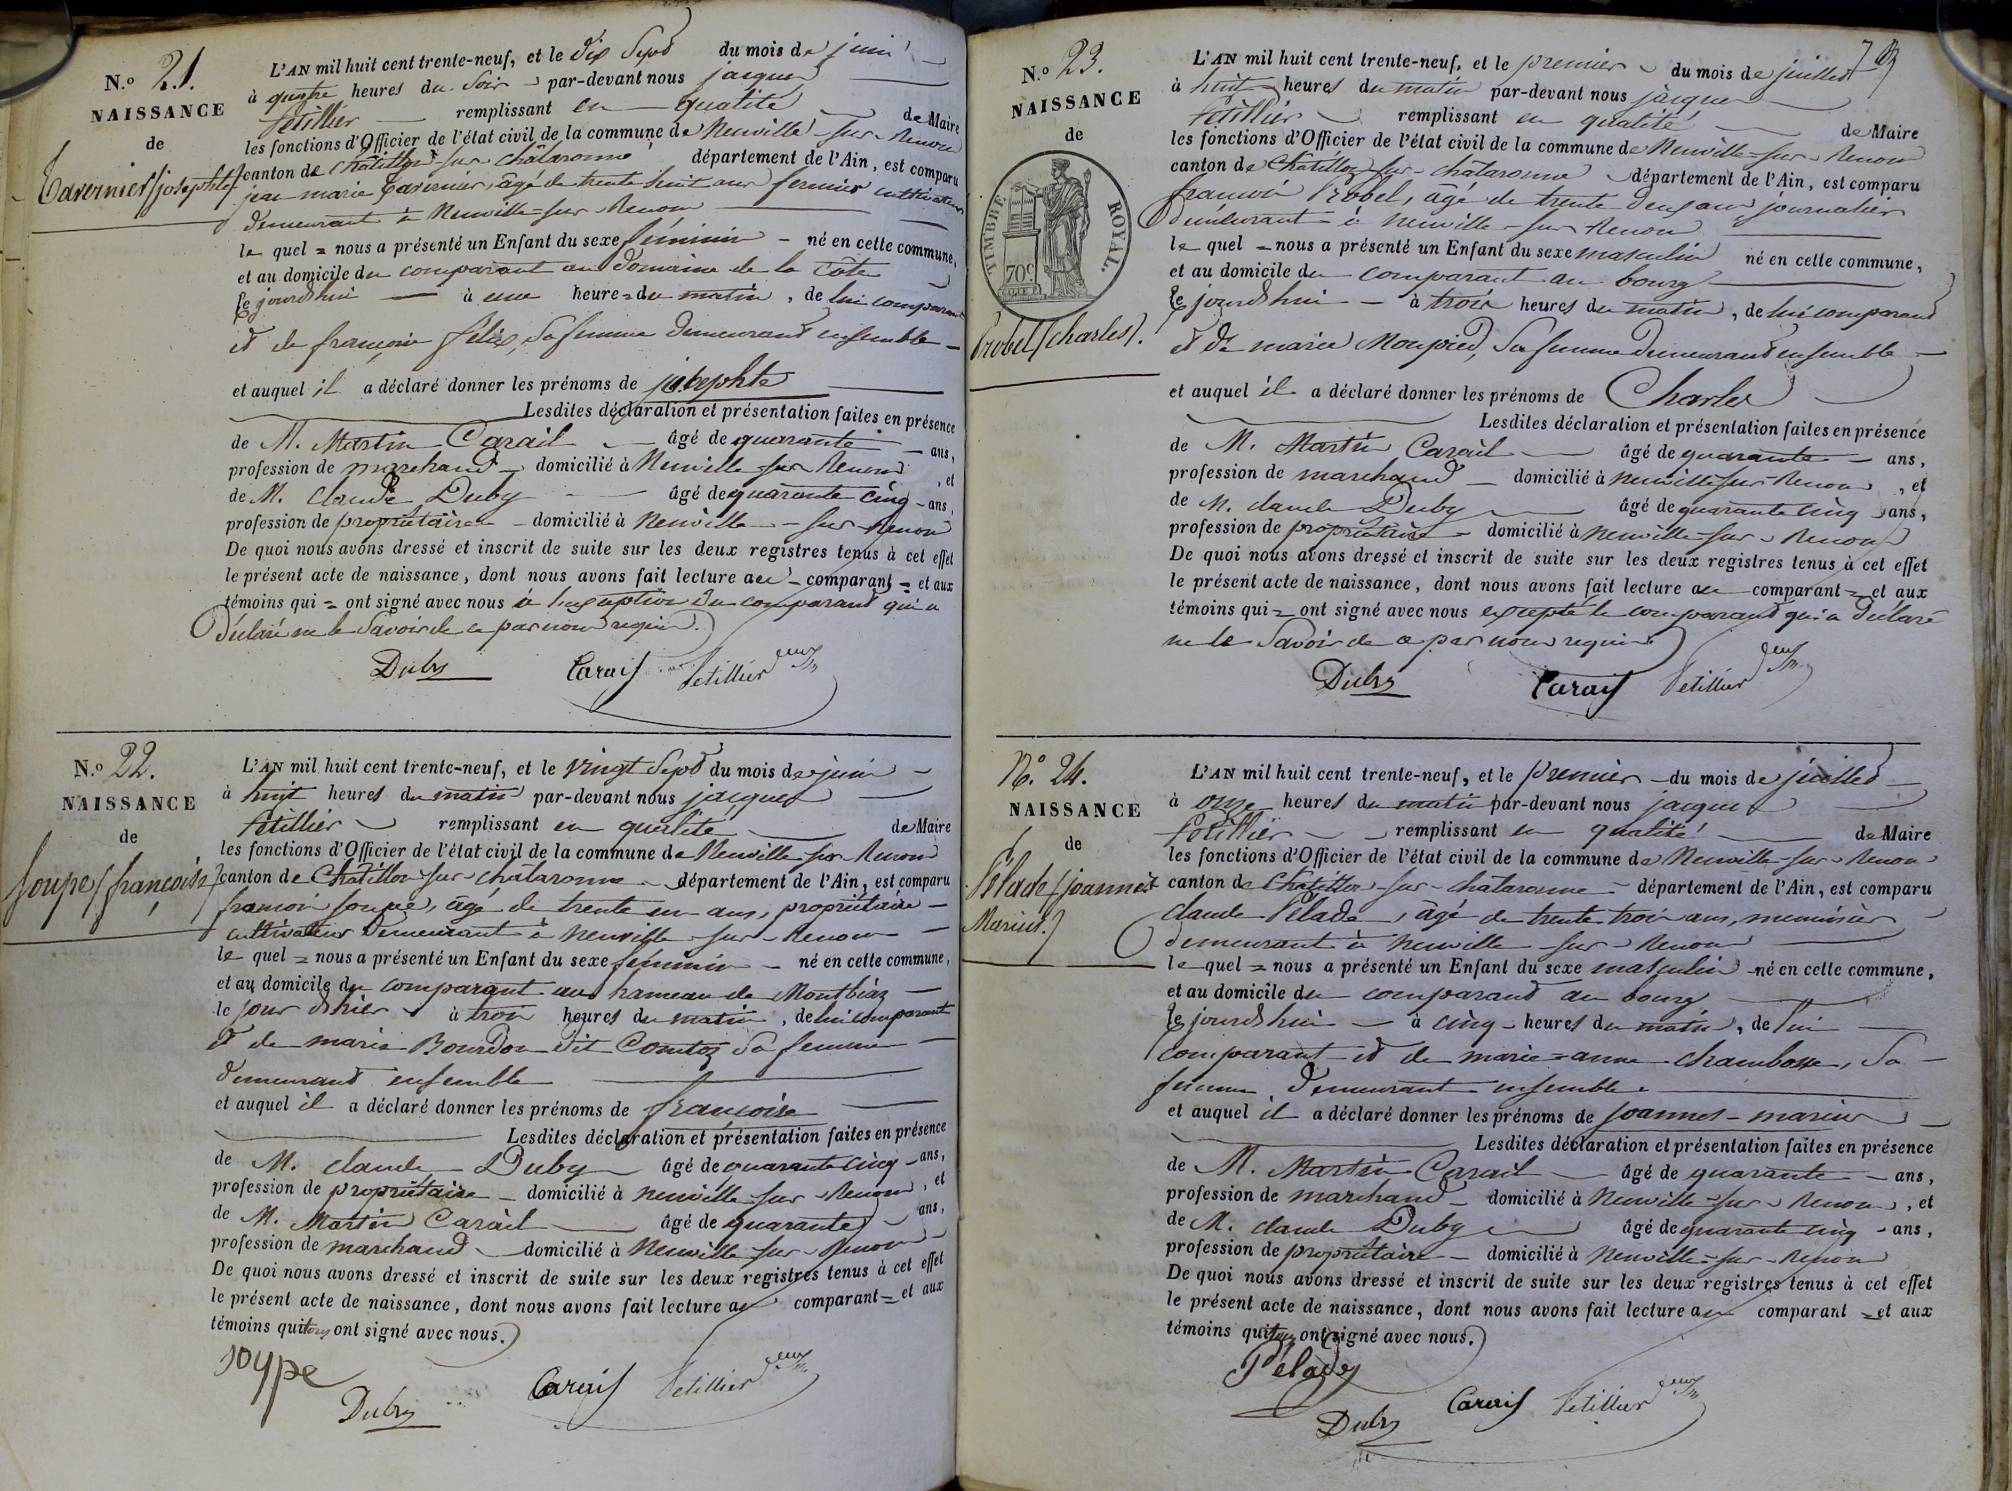 N.º 21.
NAISSANCE
de
Tavernier (josephte)
L'AN mil huit cent trente-neuf, et le dix Sept du mois de juin
à quatre heures du Soir par-devant nous jacques
Petillier remplissant en qualité de Maire
les fonctions d'Officier de l'état civil de la commune de Neuville-sur-Renon
canton de Châtillon-sur-châlaronne département de l'Ain, est comparu
jean marie Tavernier, âgé de trente huit ans fermier cultivateur
demeurant à Neuville-sur-Renon
le quel = nous a présenté un Enfant du sexe féminin - né en cette commune,
et au domicile du comparant au Domaine de la Côte
le jourd'hui à une heure = du matin, de lui comparant
et de françoise félix, Sa femme demeurant ensemble
et auquel il a déclaré donner les prénoms de josephte
Lesdites déclaration et présentation faites en présence
de M. Martin Carail âgé de quarante ans,
profession de marchand domicilié à Neuville-sur-Renon, et
de M. claude Duby âgé de quarante cinq - ans,
profession de propriétaire - domicilié à Neuville-sur-Renon
De quoi nous avons dressé et inscrit de suite sur les deux registres tenus à cet effet
le présent acte de naissance, dont nous avons fait lecture au - comparant = et aux
témoins qui = ont signé avec nous à l'exception du comparant qui a
déclaré ne le Savoir de ce par nous requis.
Duby Carail Petillier
N.º 22.
NAISSANCE
de
Soupe (françoise)
L'AN mil huit cent trente-neuf, et le vingt Sept du mois de juin
à huit heures du matin par-devant nous jacques
Petillier remplissant en qualité de Maire
les fonctions d'Officier de l'état civil de la commune de Neuville-sur-Renon
canton de Châtillon-sur-châlaronne département de l'Ain, est comparu
francois soupe, âgé de trente un ans, propriétaire
cultivateur demeurant à Neuville-sur-Renon
le quel = nous a présenté un Enfant du sexe féminin - né en cette commune,
et au domicile du comparant au hameau de Montbiaz
le jour d'hier à trois heures du matin, de lui comparant
et de marie Bourdon dit Comtoz Sa femme
demeurant ensemble
et auquel il a déclaré donner les prénoms de françoise
Lesdites déclaration et présentation faites en présence
de M. claude Duby âgé de quarante cinq - ans,
profession de propriétaire - domicilié à Neuville-sur-Renon, et
de M. Martin Carail âgé de quarante ans,
profession de marchand domicilié à Neuville-sur-Renon
De quoi nous avons dressé et inscrit de suite sur les deux registres tenus à cet effet
le présent acte de naissance, dont nous avons fait lecture au comparant = et aux
témoins qui tous ont signé avec nous.
soype
Duby Carail Petillier
7
N.º 23.
NAISSANCE
de
TIMBRE ROYAL.
70c
Probel (charles).
L'AN mil huit cent trente-neuf, et le premier du mois de juillet
à huit heures du matin par-devant nous jacques
Petillier remplissant en qualité de Maire
les fonctions d'Officier de l'état civil de la commune de Neuville-sur-Renon
canton de Châtillon-sur-châlaronne département de l'Ain, est comparu
françois Probel, âgé de trente deux ans journalier
demeurant à Neuville-sur-Renon
le quel = nous a présenté un Enfant du sexe masculin né en cette commune,
et au domicile du comparant au bourg
le jourd'hui - à trois heures du matin, de lui comparant
et de marie Monpied, Sa femme demeurant ensemble
et auquel il a déclaré donner les prénoms de Charles
Lesdites déclaration et présentation faites en présence
de M. Martin Carail âgé de quarante - ans,
profession de marchand - domicilié à Neuville-sur-Renon, et
de M. claude Duby âgé de quarante cinq ans,
profession de propriétaire - domicilié à Neuville-sur-Renon
De quoi nous avons dressé et inscrit de suite sur les deux registres tenus à cet effet
le présent acte de naissance, dont nous avons fait lecture au comparant = et aux
témoins qui = ont signé avec nous excepté le comparant qui a déclaré
ne le Savoir de ce par nous requis.
Duby Carail Petillier
N.º 24.
NAISSANCE
de
Pélade (joannès
Marius.)
L'AN mil huit cent trente-neuf, et le premier du mois de juillet
à onze heures du matin par-devant nous jacques
Petillier remplissant en qualité de Maire
les fonctions d'Officier de l'état civil de la commune de Neuville-sur-Renon
canton de Châtillon-sur-châlaronne - département de l'Ain, est comparu
claude Pélade, âgé de trente trois ans, menuisier
demeurant à Neuville-sur-Renon
le quel = nous a présenté un Enfant du sexe masculin né en cette commune,
et au domicile du comparant au bourg
le jourd'hui à cinq heures du matin, de lui
comparant et de marie-anne chambosse, Sa
femme demeurant ensemble.
et auquel il a déclaré donner les prénoms de joannes-marius
Lesdites déclaration et présentation faites en présence
de M. Martin Carail âgé de quarante - ans,
profession de marchand domicilié à Neuville-sur-Renon, et
de M. claude Duby âgé de quarante cinq - ans,
profession de propriétaire - domicilié à Neuville-sur-Renon
De quoi nous avons dressé et inscrit de suite sur les deux registres tenus à cet effet
le présent acte de naissance, dont nous avons fait lecture au comparant = et aux
témoins qui tous ont signé avec nous.
Pélade
Duby Carail Petillier